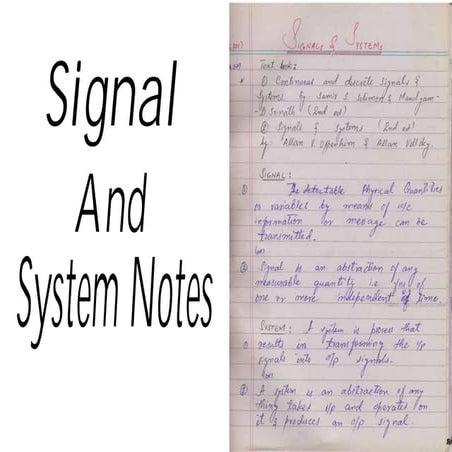 Signal
And
System Notes
SIGNALS & SYSTEMS
Text book:
① Continuous and discrete signals &
Systems by: Samir S Soliman & Mandyam
D Srinath (2nd ed)
② Signals & systems (2nd ed)
by: Allan V. Oppenheim & Allan
SIGNAL:
① The detectable Physical Quantities
or variables by means of w/c
information or message can be
transmitted.
(or)
② Signal is an abstraction of any
measurable quantity i.e. of
one or more independent of time.
SYSTEM: A system is process that
① results in transforming the i/p
signals into o/p signals.
(or)
② A system is an abstraction of any
thing takes i/p and operates on
it & produces an o/p signal.